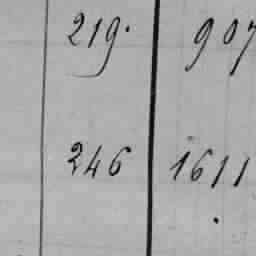 219. 907
246 1611